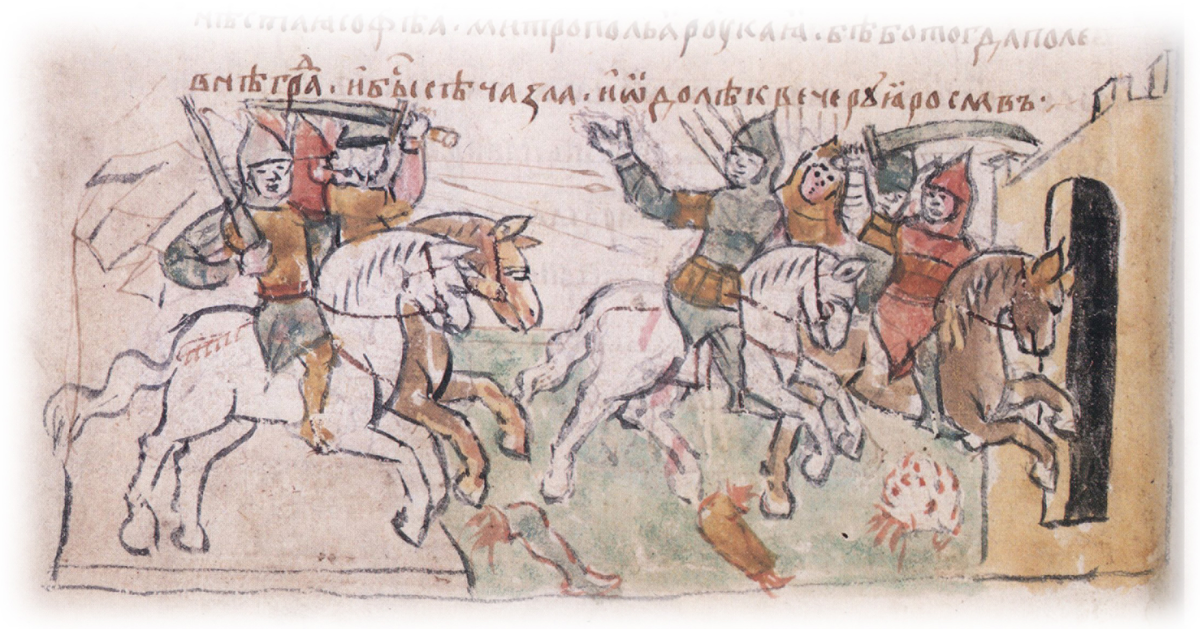 нѣ стаꙗ софѣа · митропольа роускаꙗ · бѣ бо тогда поле
внѣ граⷣ · и быⷭ сѣча зла · и ѿдолѣ к вечерꙋ ꙗрославъ ·